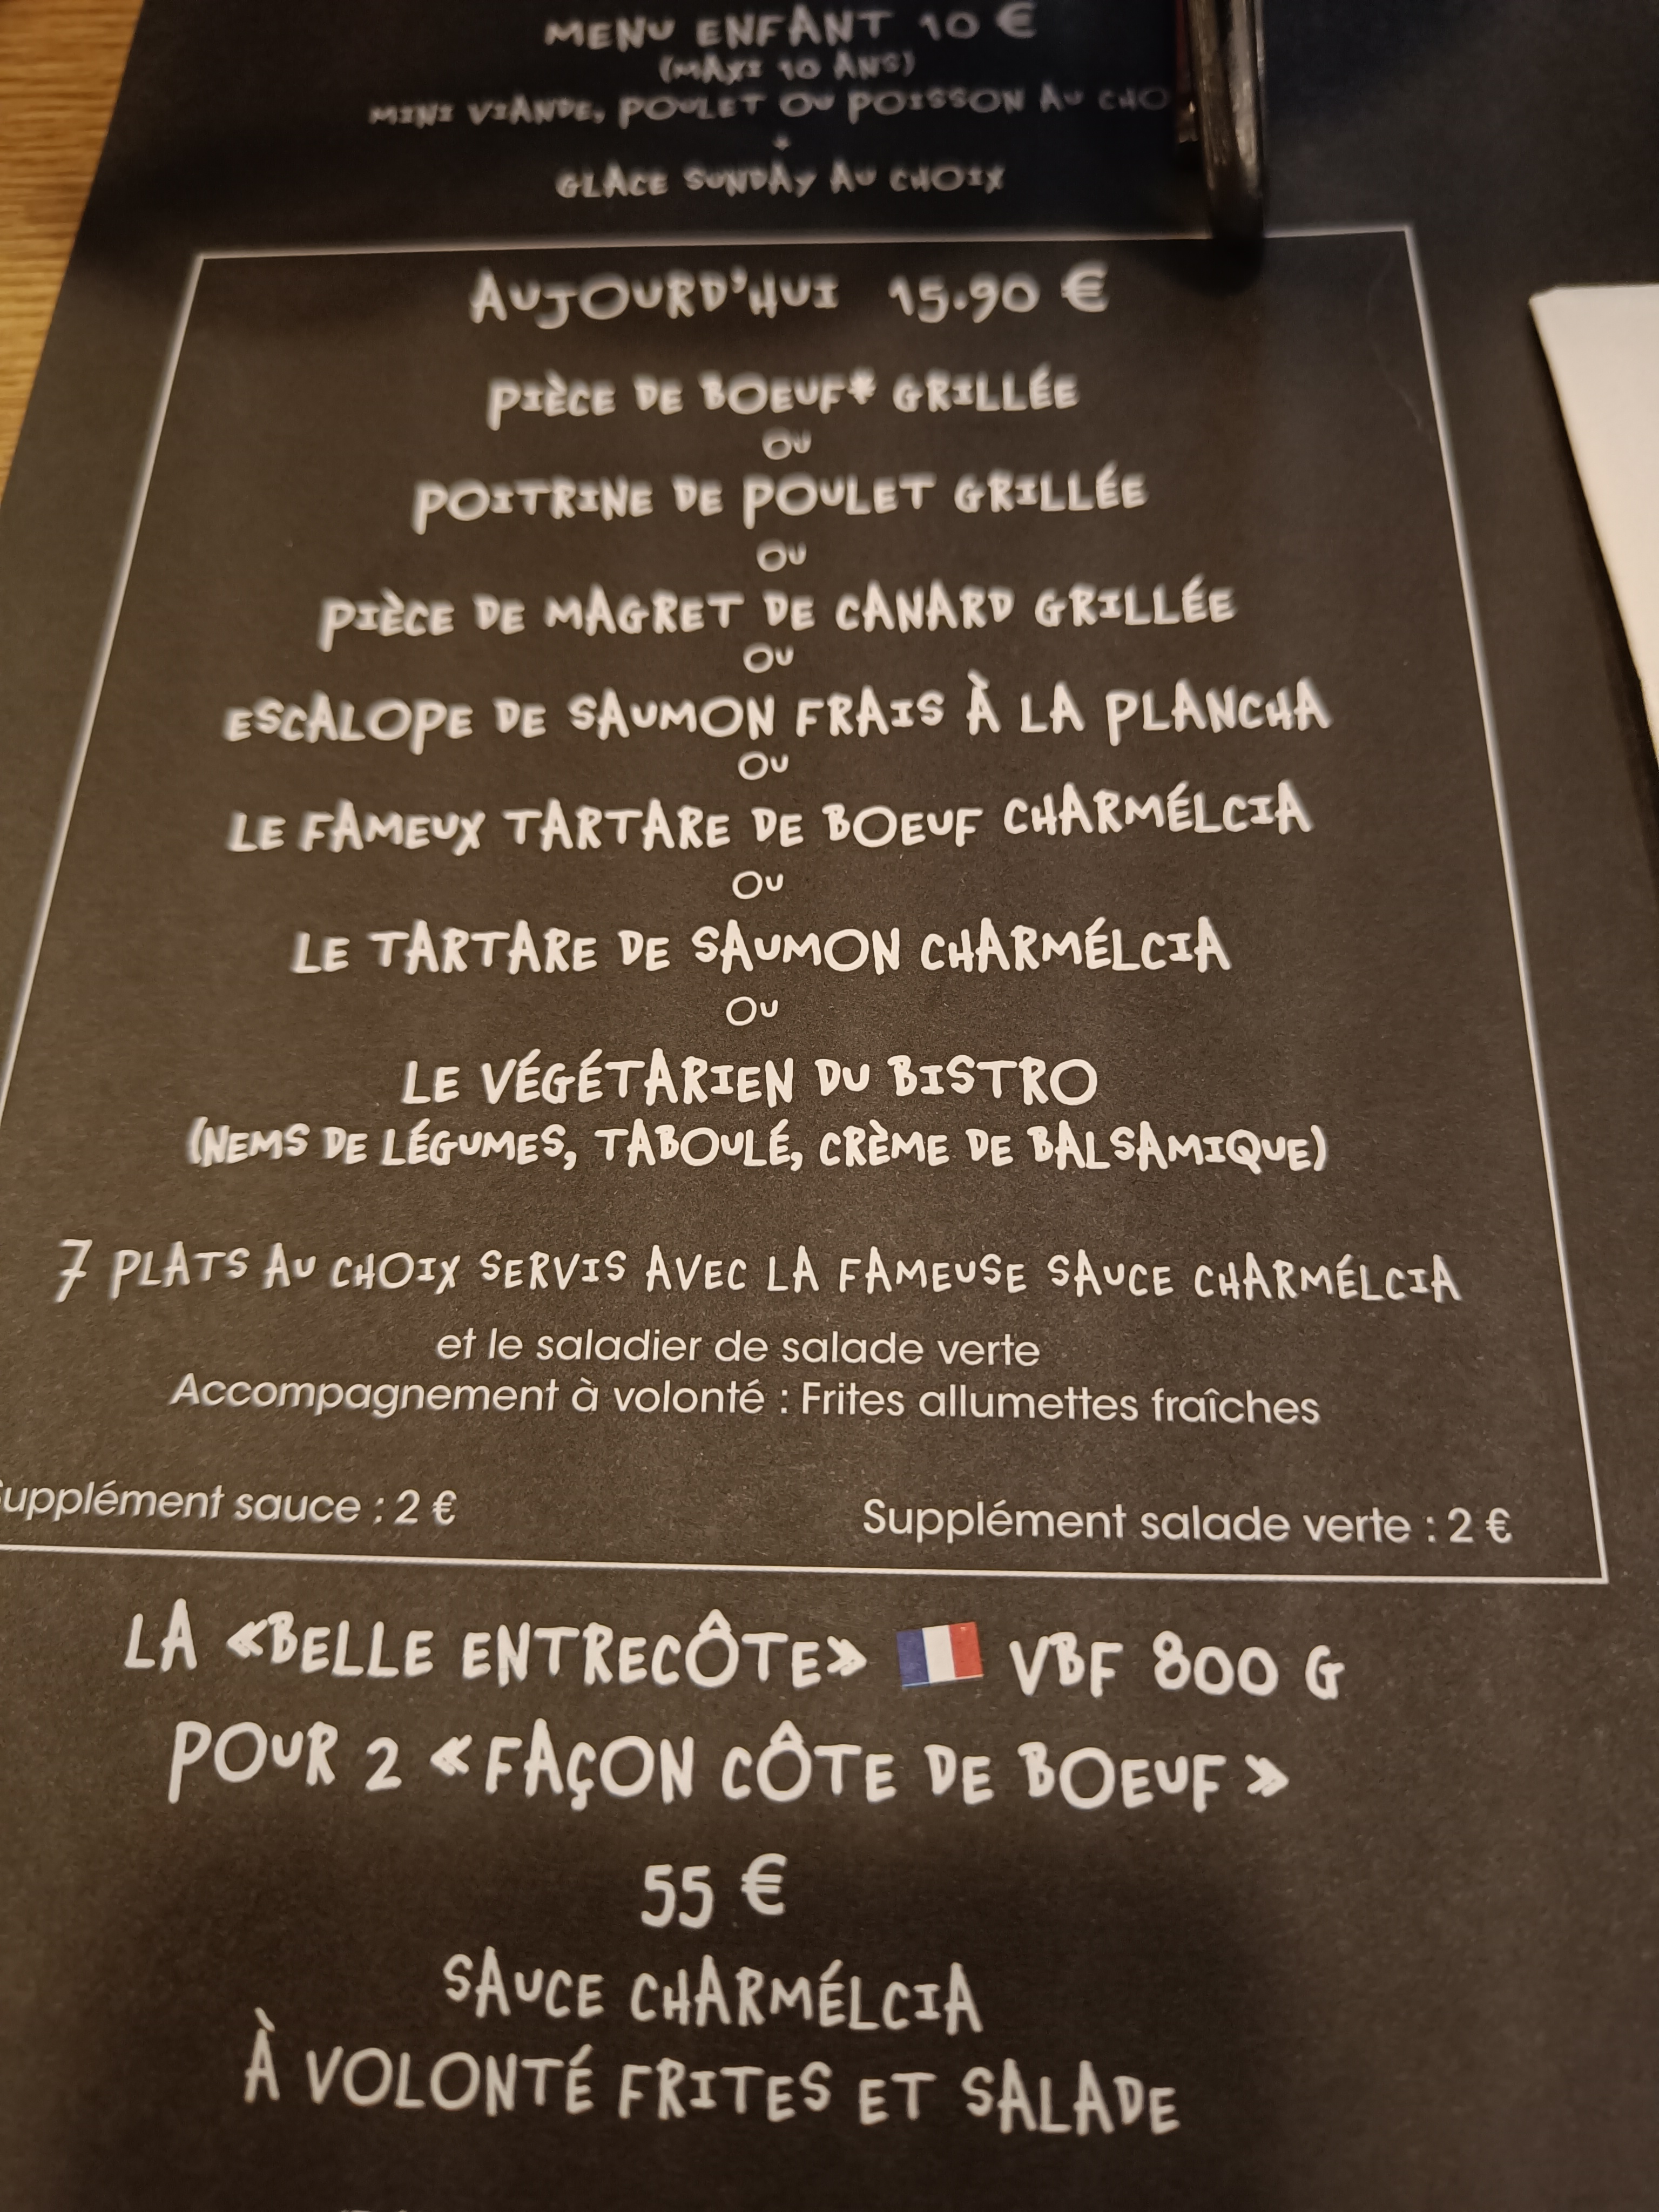 MENU ENFANT 10 €
(MAXI 10 ANS)
MINI VIANDE, POULET OU POISSON AU CHO
+
GLACE SUNDAY AU CHOIX
AUJOURD'HUI 15.90 €
PIÈCE DE BOEUF* GRILLÉE
OU
POITRINE DE POULET GRILLÉE
OU
PIÈCE DE MAGRET DE CANARD GRILLÉE
OU
ESCALOPE DE SAUMON FRAIS À LA PLANCHA
OU
LE FAMEUX TARTARE DE BOEUF CHARMÉLCIA
OU
LE TARTARE DE SAUMON CHARMÉLCIA
OU
LE VÉGÉTARIEN DU BISTRO
(NEMS DE LÉGUMES, TABOULÉ, CRÈME DE BALSAMIQUE)
7 PLATS AU CHOIX SERVIS AVEC LA FAMEUSE SAUCE CHARMÉLCIA
et le saladier de salade verte
Accompagnement à volonté : Frites allumettes fraîches
Supplément sauce : 2 € Supplément salade verte : 2 €
LA «BELLE ENTRECÔTE» VBF 800 G
POUR 2 « FAÇON CÔTE DE BOEUF »
55 €
SAUCE CHARMÉLCIA
À VOLONTÉ FRITES ET SALADE